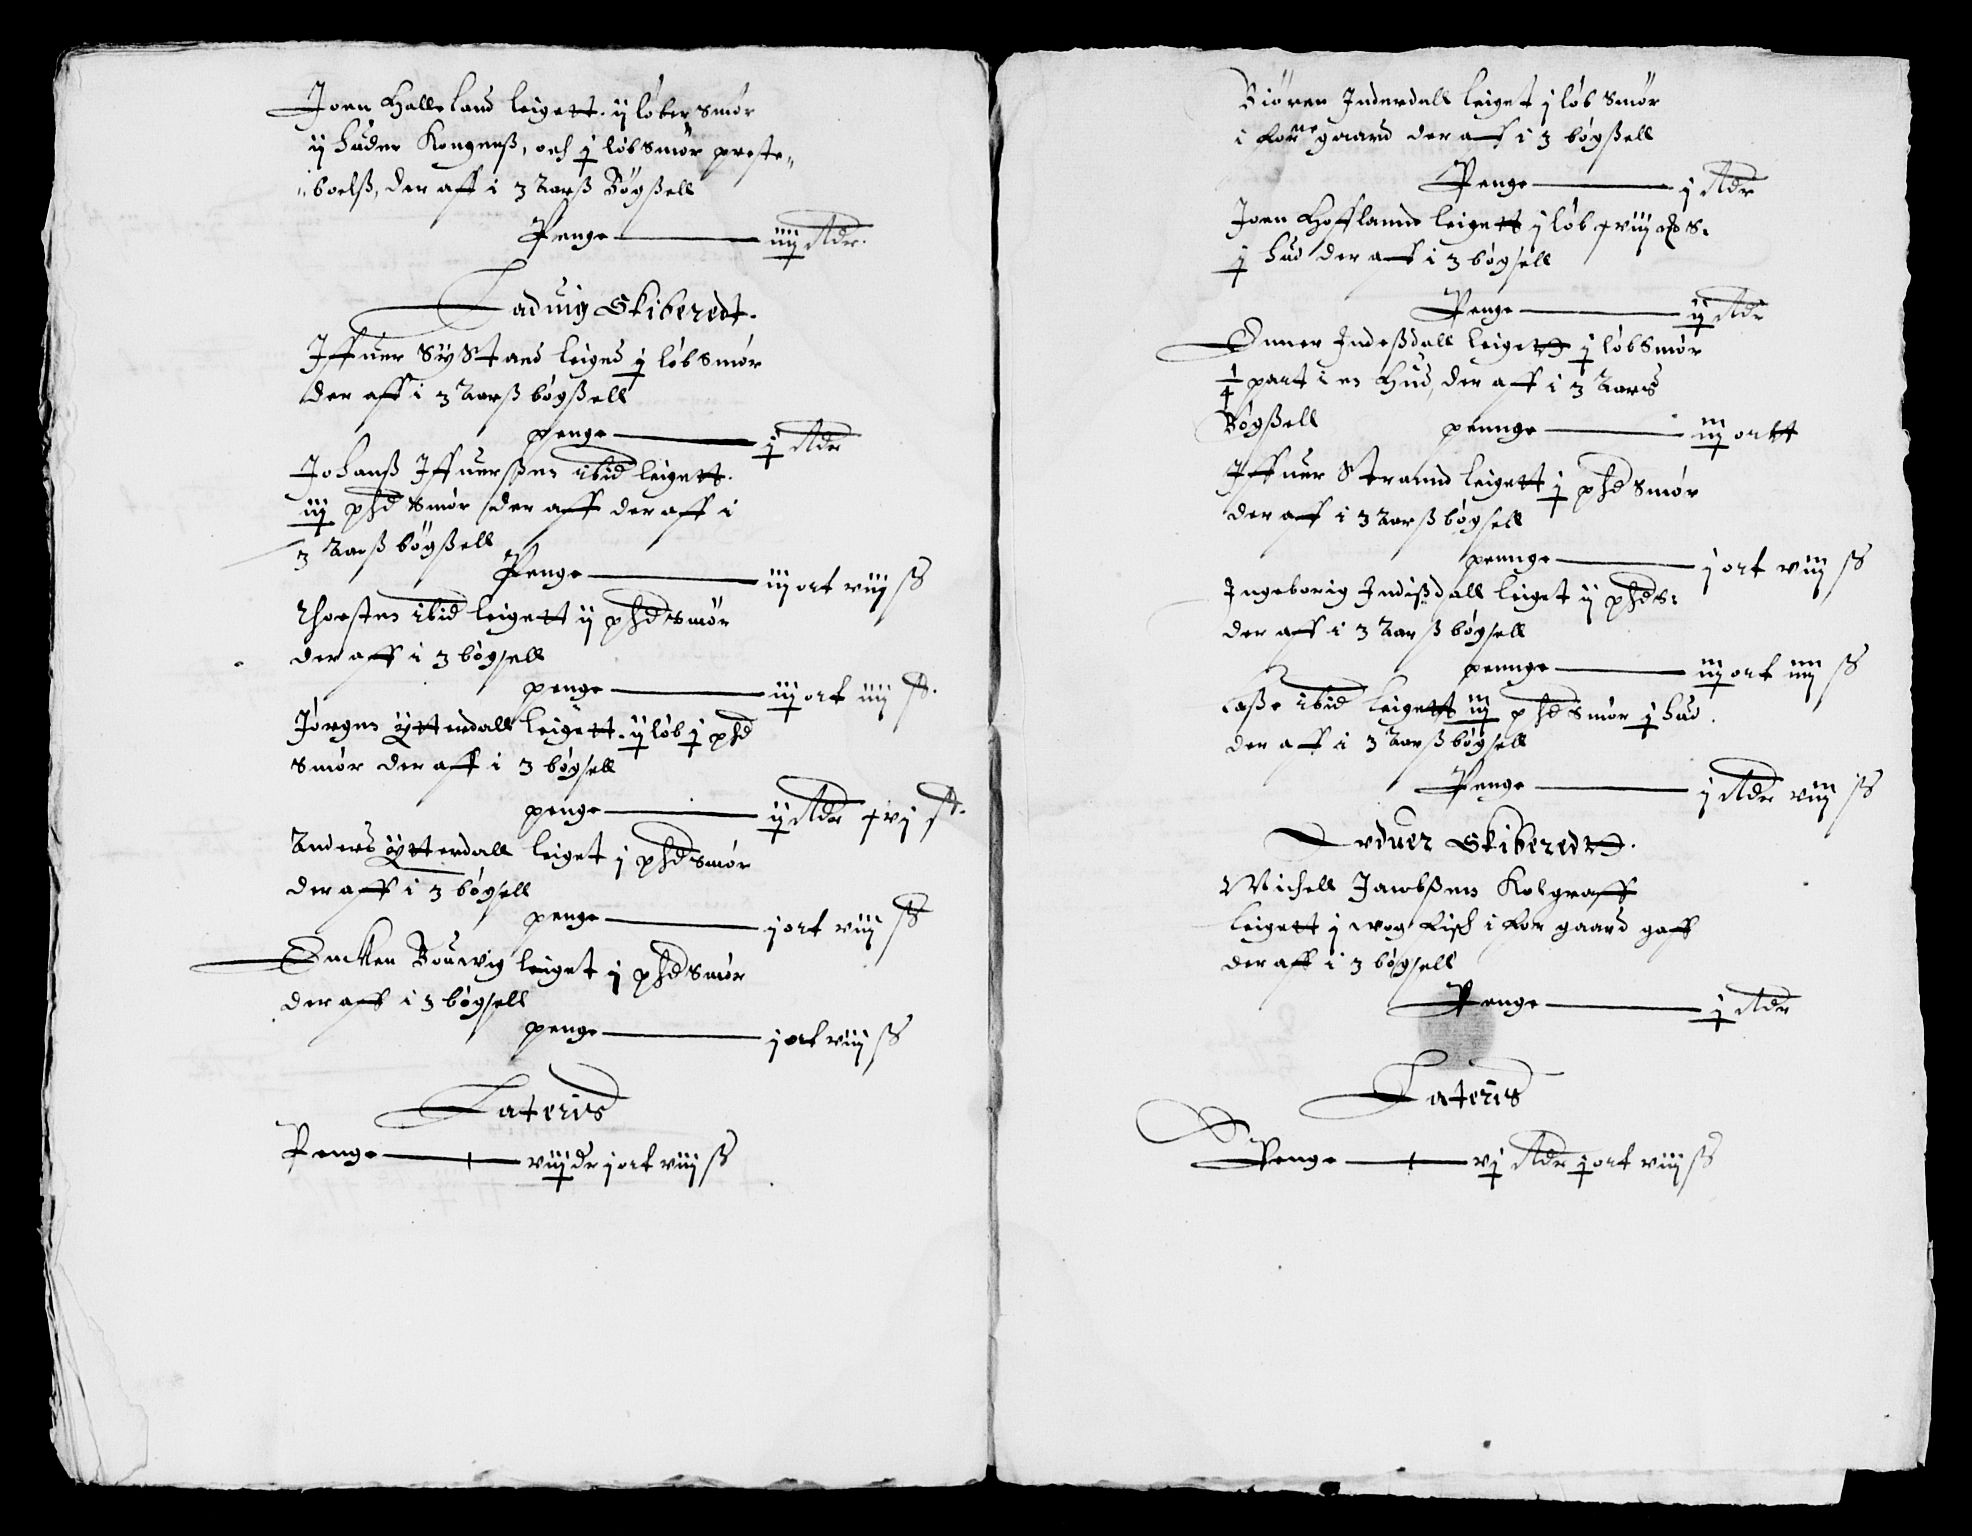 Joen Halleland leigett. ij løber smør
ij huder Kongens, och j løb smør preste„
„boelß, der aff i 3 Aarß Bøgßell
Penge — iiij Rdr.
Laduig Skiberedt.
Iffuer Systand leiged j løb smør
der aff i 3 Aarß bøgßell
penge — j Rdr
Johanß Iffuerßen ibid leigett.
iiij phd smør der aff der aff i
3 Aarß bøgßell
Penge — iij ort viij ß
Thorsten ibid leigett ij phd smør
der aff i 3 bøgsell
penge — iij ort iiij ß.
Jørgen Ytterdall leigett. ij løb j phd
smør der aff i 3 bøgsell
penge — ij Rdr xvj ß.
Anders Ytterdall leiget j phd smør
der aff i 3 bøgsell
penge — j ort viij ß
Bouwig leiget j phd smør
der aff i 3 bøgsell
penge — j ort viij ß
Lateris
Penge — viij dr j ort viij ß
Biøren Inderdall leiget j løb smør
i for ne gaard der aff i 3 bøgßell
Penge — j Rdr
Joen Hoffland leigett j løb xviij s.
j hud der aff i 3 bøgsell
Penge — ij Rdr
Indeßdall leigett j løb smør
1/4 part i en Hud, der aff i 3 Aars
Bøgßell pennge — iij ortt
Iffuer Strannd leigett j phd smør
der aff i 3 Aarß bøgsell
pennge — j ort viij ß
Ingeborig Indißdall leiget ij phd s:
der aff i 3 Aarß bøgsell
pennge — iij ort iiij ß
Laße ibid leigett iij phd smør j hud.
der aff i 3 Aarß bøgsell
Penge — j Rdr viij ß
Arduer Skiberedt.
Michell Jacobßen Kolgraff
leigett j wog fisch i for gaard gaff
der aff i 3 bøgsell
Penge — j Rdr
Lateris
Penge — vj Rdr j ort viij ß